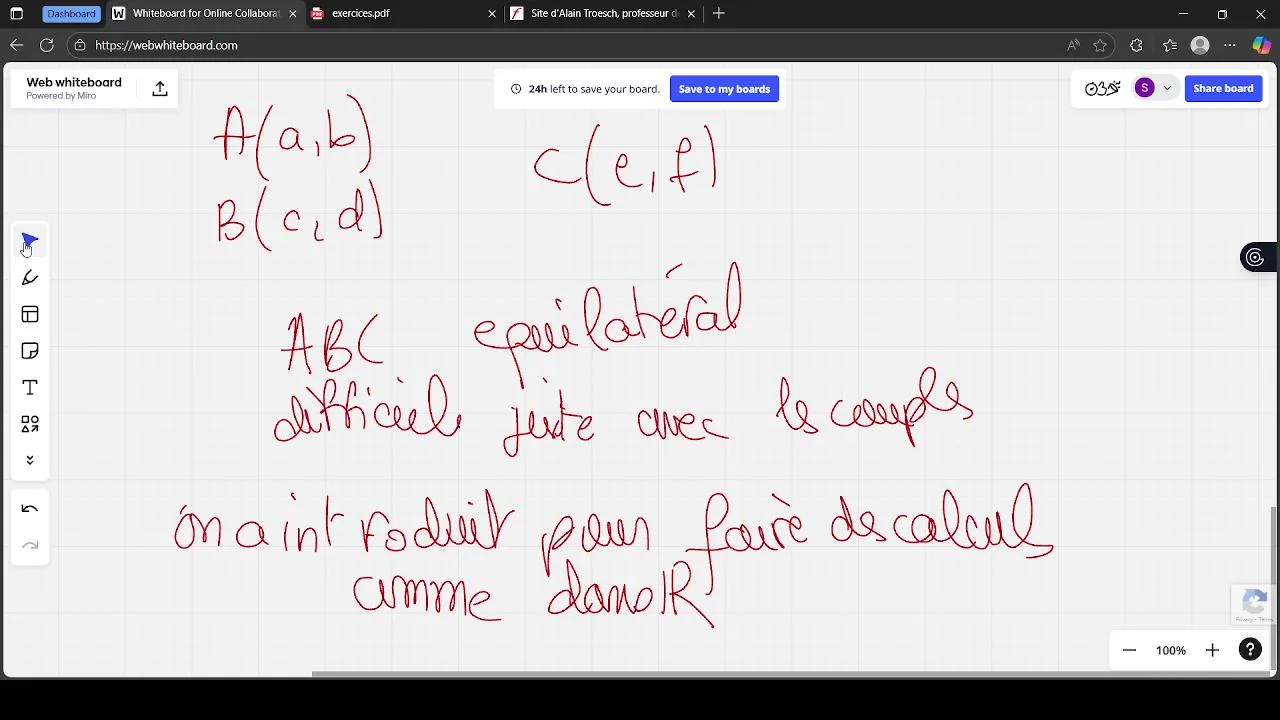 Dashboard
Whiteboard for Online Collaborat
exercices.pdf
Site d'Alain Troesch, professeur d
https://webwhiteboard.com
Web whiteboard
Powered by Miro
24h left to save your board.
Save to my boards
S
Share board
A(a,b)
C(e,f)
B(c,d)
ABC equilatéral
difficile juste avec les couples
on a introduit pour faire des calculs
comme dans IR
Privacy - Terms
100%